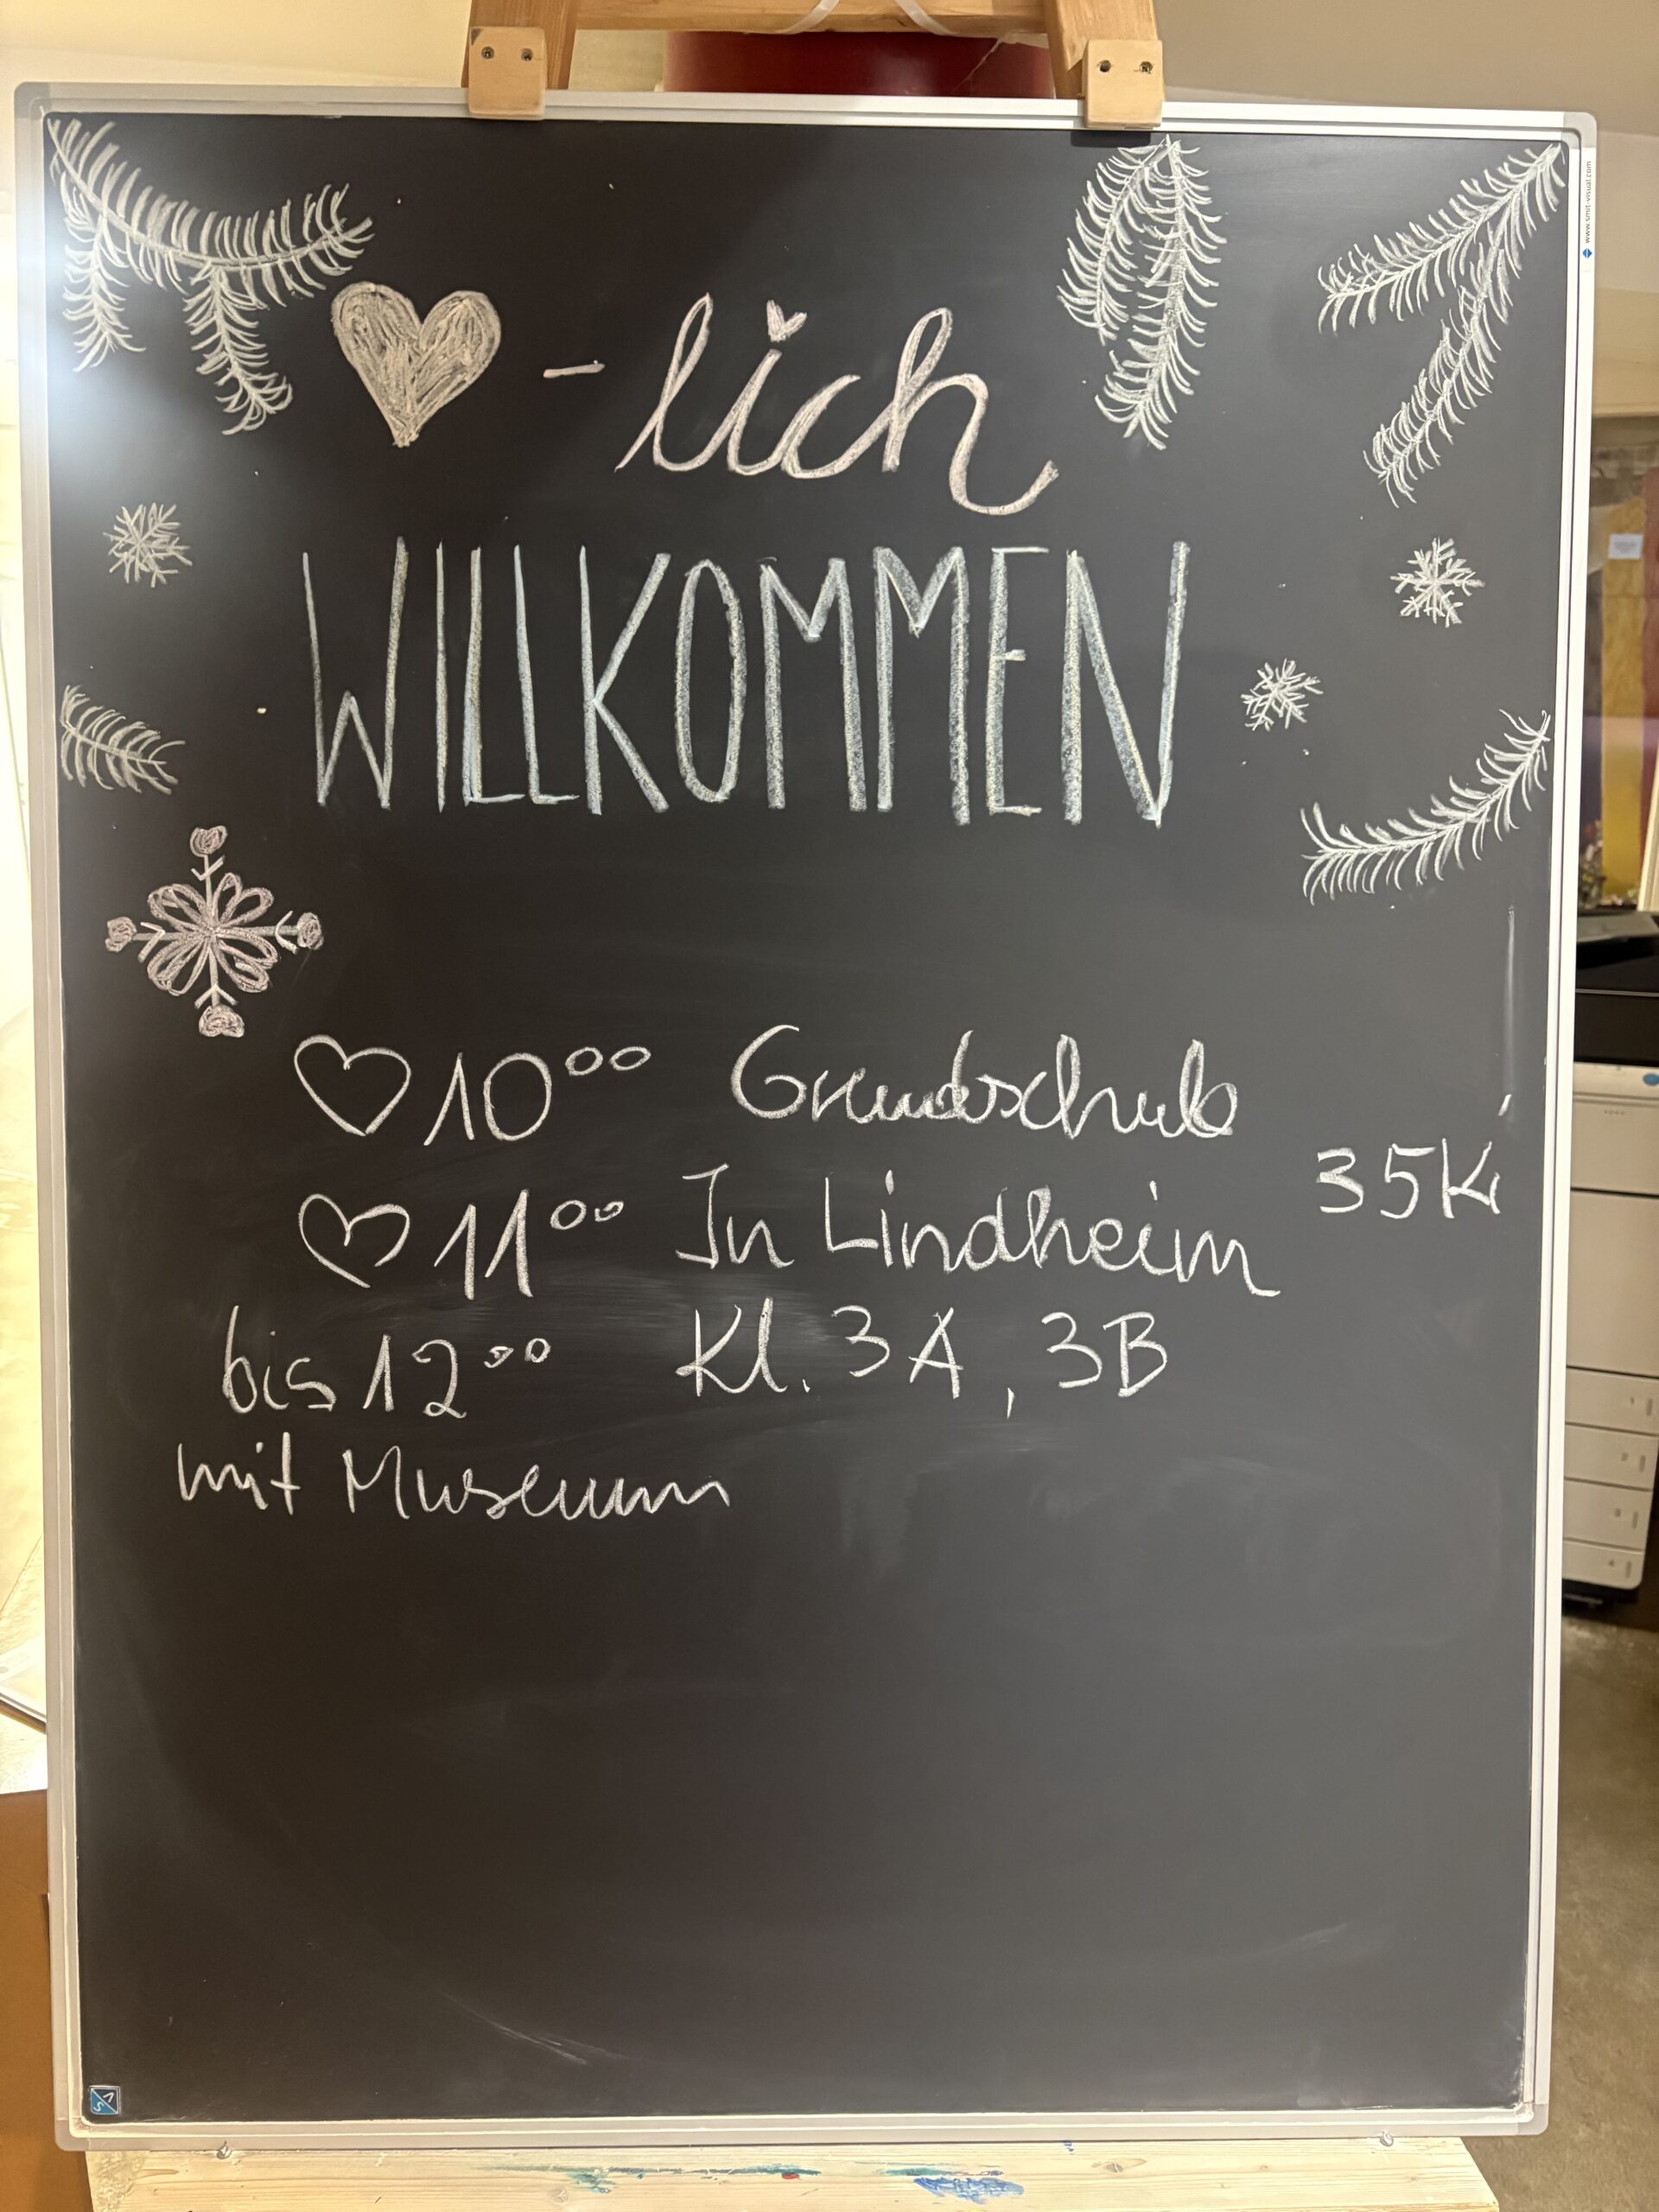 -lich
WILLKOMMEN
10 00 Grundschule
35 Ki
11 00 In Lindheim
bis 12 00 Kl. 3A, 3B
mit Museum
www.smit-visual.com